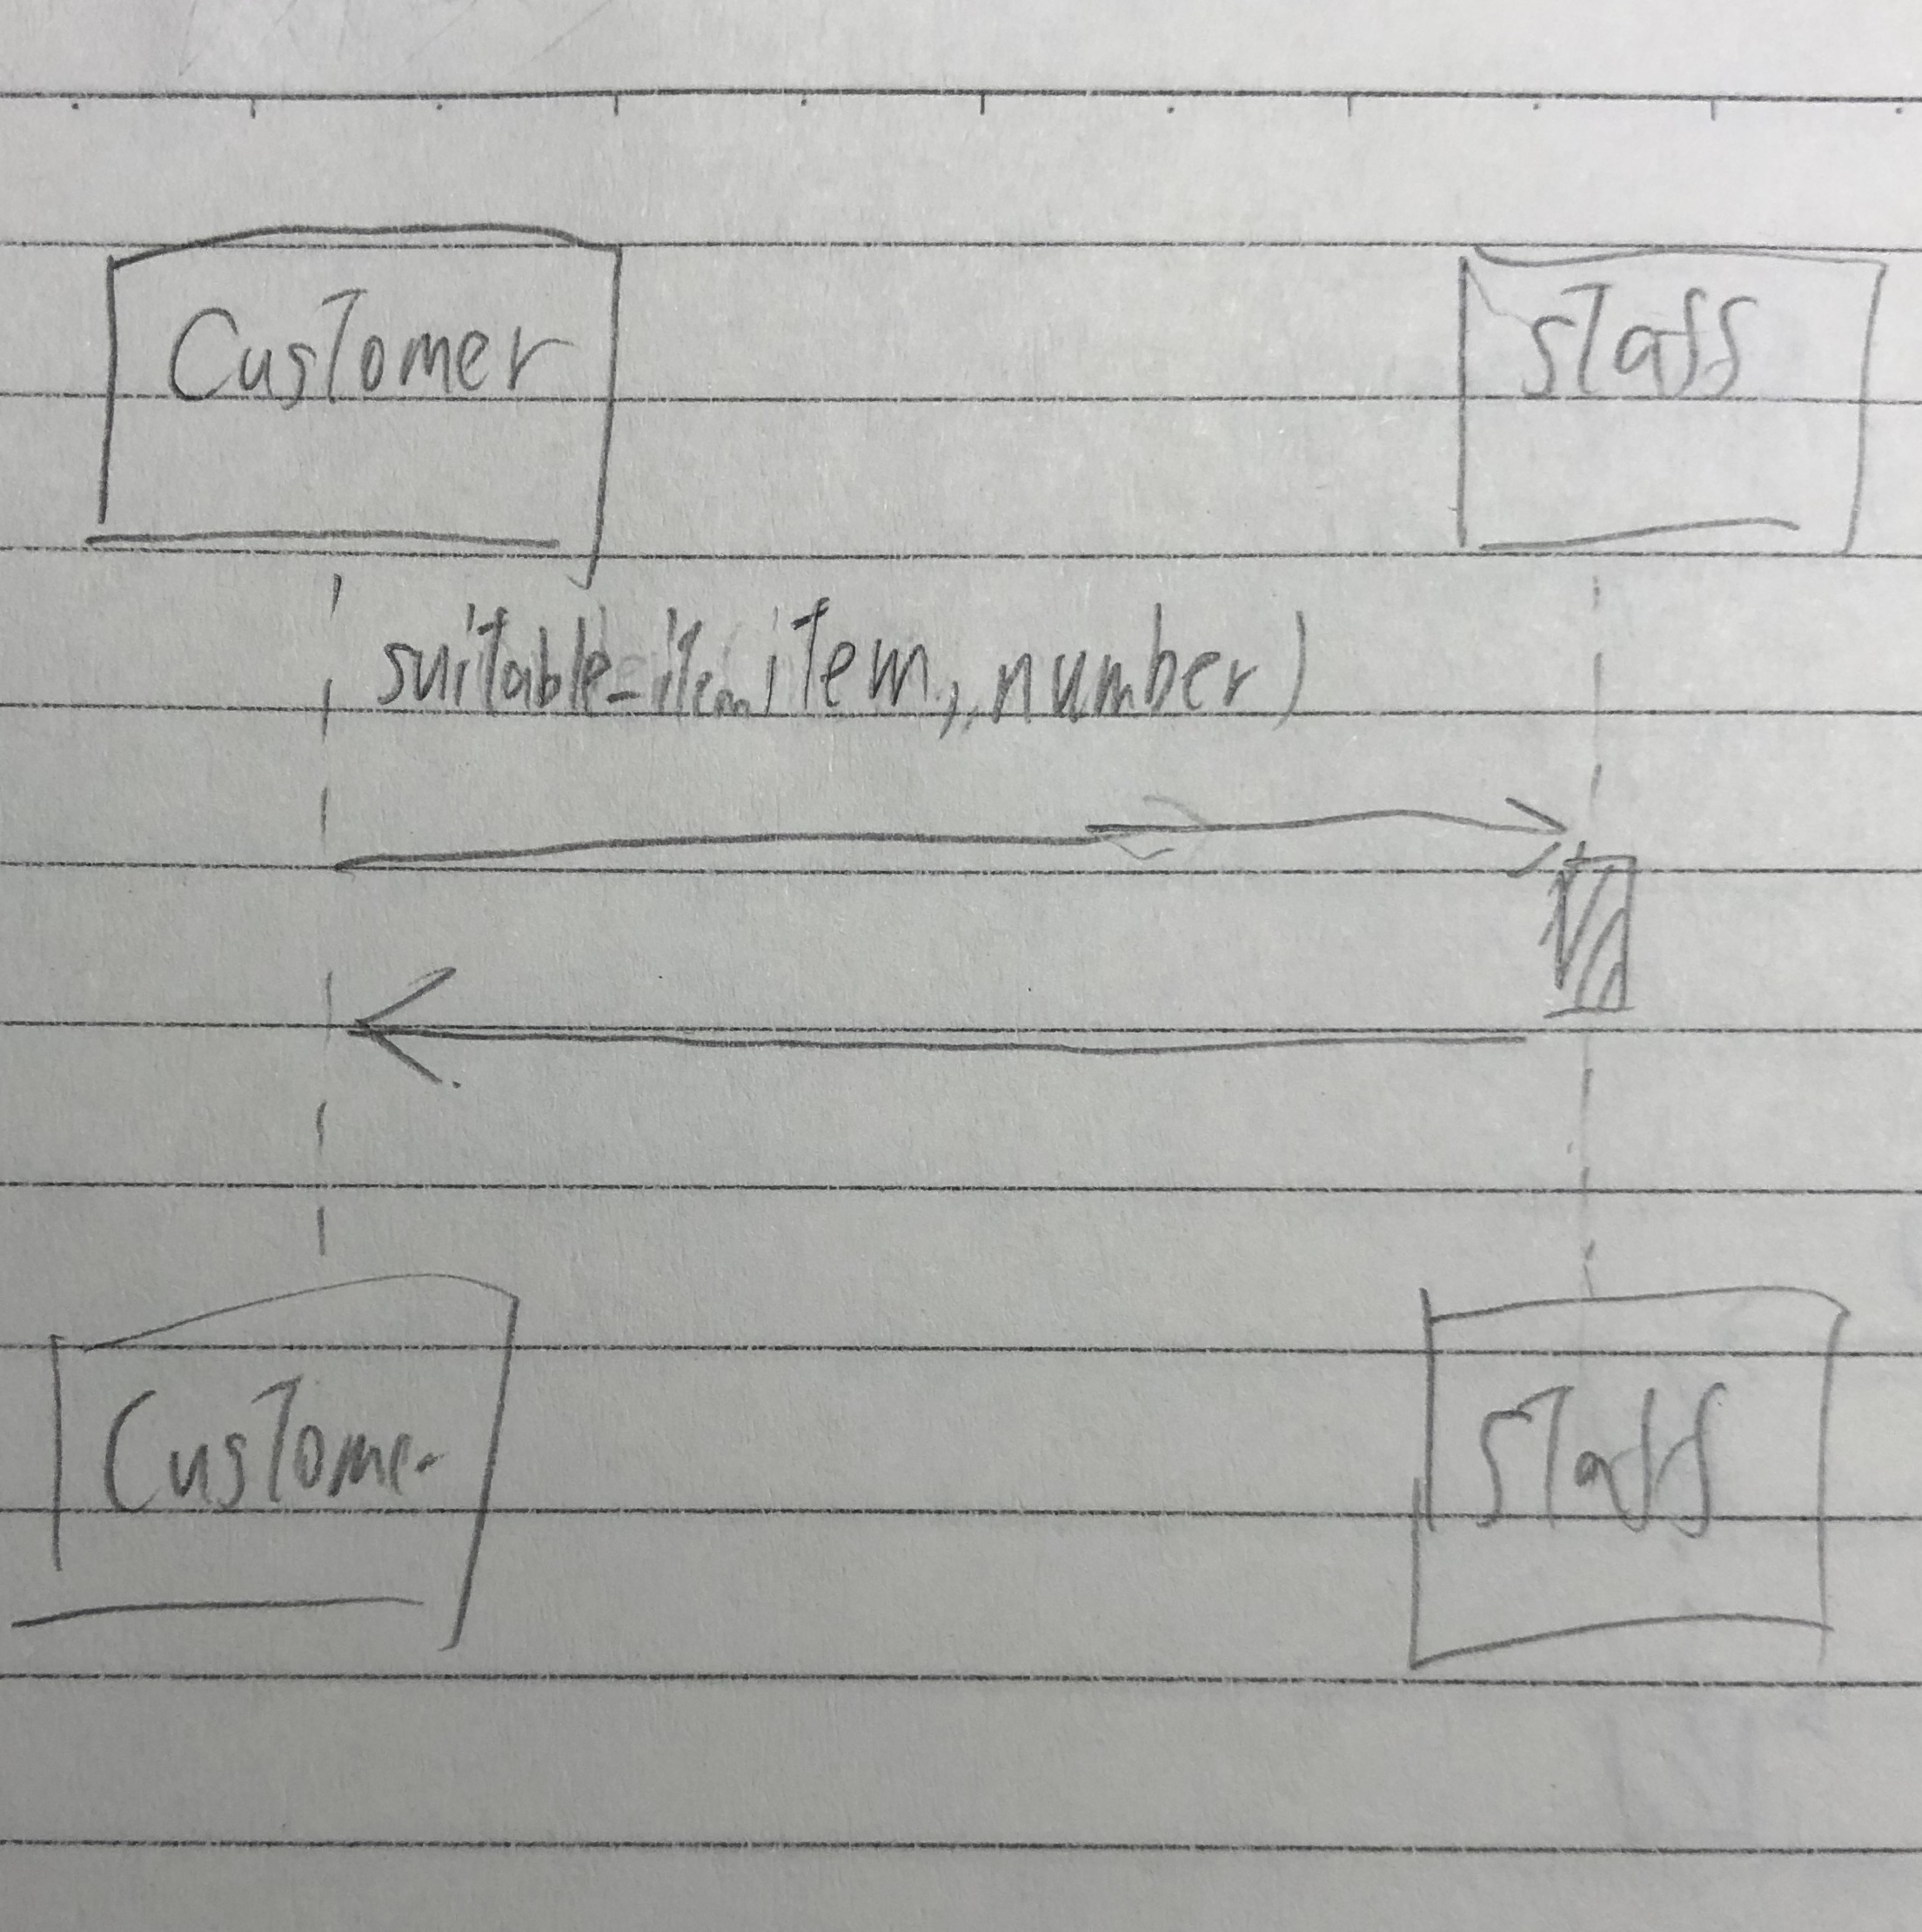 Customer staff
suitable-item item, number)
Customer staff